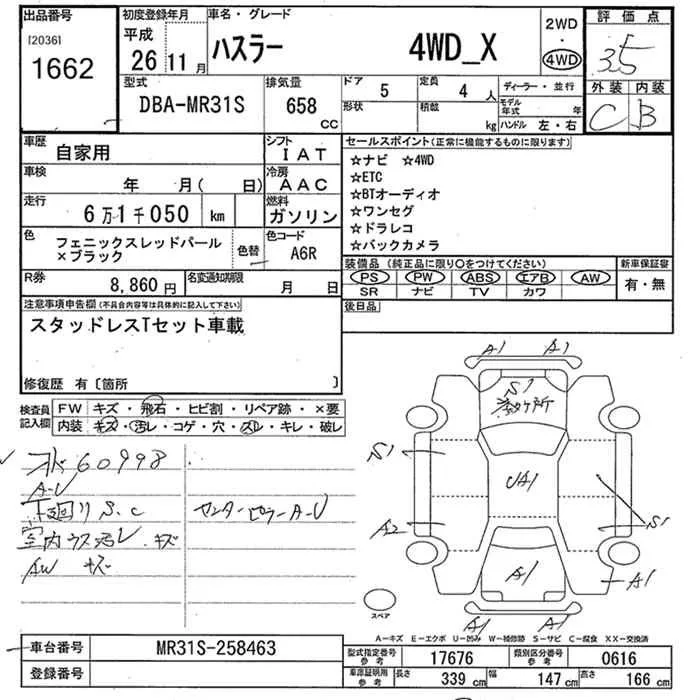 出品番号
[2036]
1662
初度登録年月
平成
26 11月
車名・グレード
ハスラー 4WD_X
2WD
・
4WD
評価点
3.5
外装 内装
C B
型式
DBA-MR31S
排気量
658
CC
ドア 5
形状
定員 4 人
積載 kg
ディーラー・並行
モデル年式 年
ハンドル 左・右
車歴
自家用
シフト
IAT
車検
年 月( 日)
冷房
AAC
走行
6万1千050 km
燃料
ガソリン
色
フェニックスレッドパール
×ブラック
色替
色コード
A6R
R券
8,860円
名変通知期限
月 日
セールスポイント(正常に機能するものに限ります)
☆ナビ ☆4WD
☆ETC
☆BTオーディオ
☆ワンセグ
☆ドラレコ
☆バックカメラ
装備品 (純正品に限り○をつけてください)
PS PW ABS エアB AW
SR ナビ TV カワ
新車保証書
有・無
後日品
注意事項申告欄(不具合内容等は具体的に記入して下さい)
スタッドレスTセット車載
修復歴 有〔箇所 〕
検査員
記入欄
FW キズ・飛石・ヒビ割・リペア跡・×要
内装 キズ・汚レ・コゲ・穴・スレ・キレ・破レ
60998
A-U
下廻りS.C
室内ウス汚レ.キズ
AW キズ
センターピラーA-U
A1 A1
S1
S1
UA1
A2
S1
A1
A1
A1 A1
スペア
A-キズ E-エクボ U-凹み W-補修跡 S-サビ C-腐食 XX-交換済
車台番号
MR31S-258463
登録番号
型式指定番号
参考
17676
類別区分番号
参考
0616
車庫証明用
参考
長さ 339 cm 幅 147 cm 高さ 166 cm